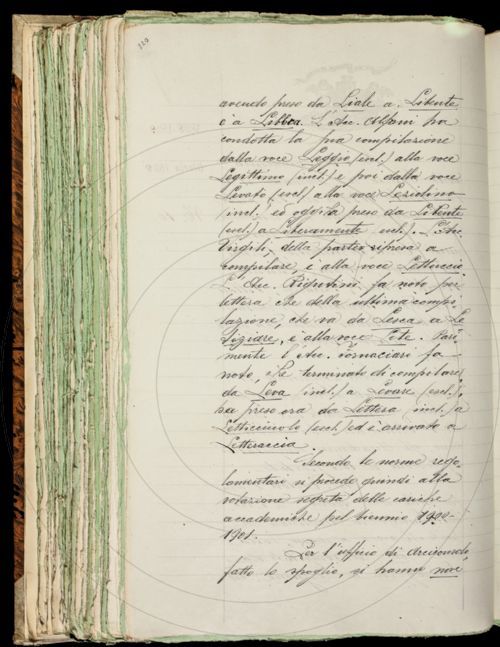 avendo preso da Liale a Libente
è a Libbra. L'Acc. Alfani ha
condotta la sua compilazione
dalla voce Leggio (incl.) alla voce
Legittimo (incl.) e poi dalla voce
Levato (escl.) alla voce Leziolino
(incl.) ed oggi ha preso da Libente
(escl.) a Liberamente escl.). L'Acc.
della parte ripresa a
compilare, è alla voce Lettuccio
L'Acc. Rigutini fa noto per
lettera che della ultima compi-
lazione, che va da Lesca a Le
tiziare, è alla voce Lete. Pari
mente l'Acc. Fornaciari fa
noto, che terminato di compilare
da Leva (incl.) a Levare (escl.),
ha preso ora da Lettera incl.) a
Letticciuolo (escl.) ed è arrivato a
Letteraccia.
Secondo le norme rego
lamentari si procede quindi alla
votazione segreta delle cariche
accademiche pel biennio 1900-
1901.
Per l'ufficio di Arciconsolo,
fatto lo spoglio, si hanno nove